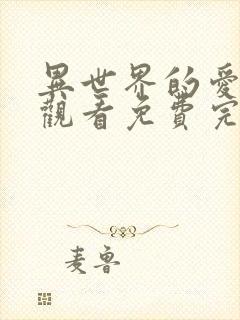 異世界的愛
觀看免費完
麦鲁